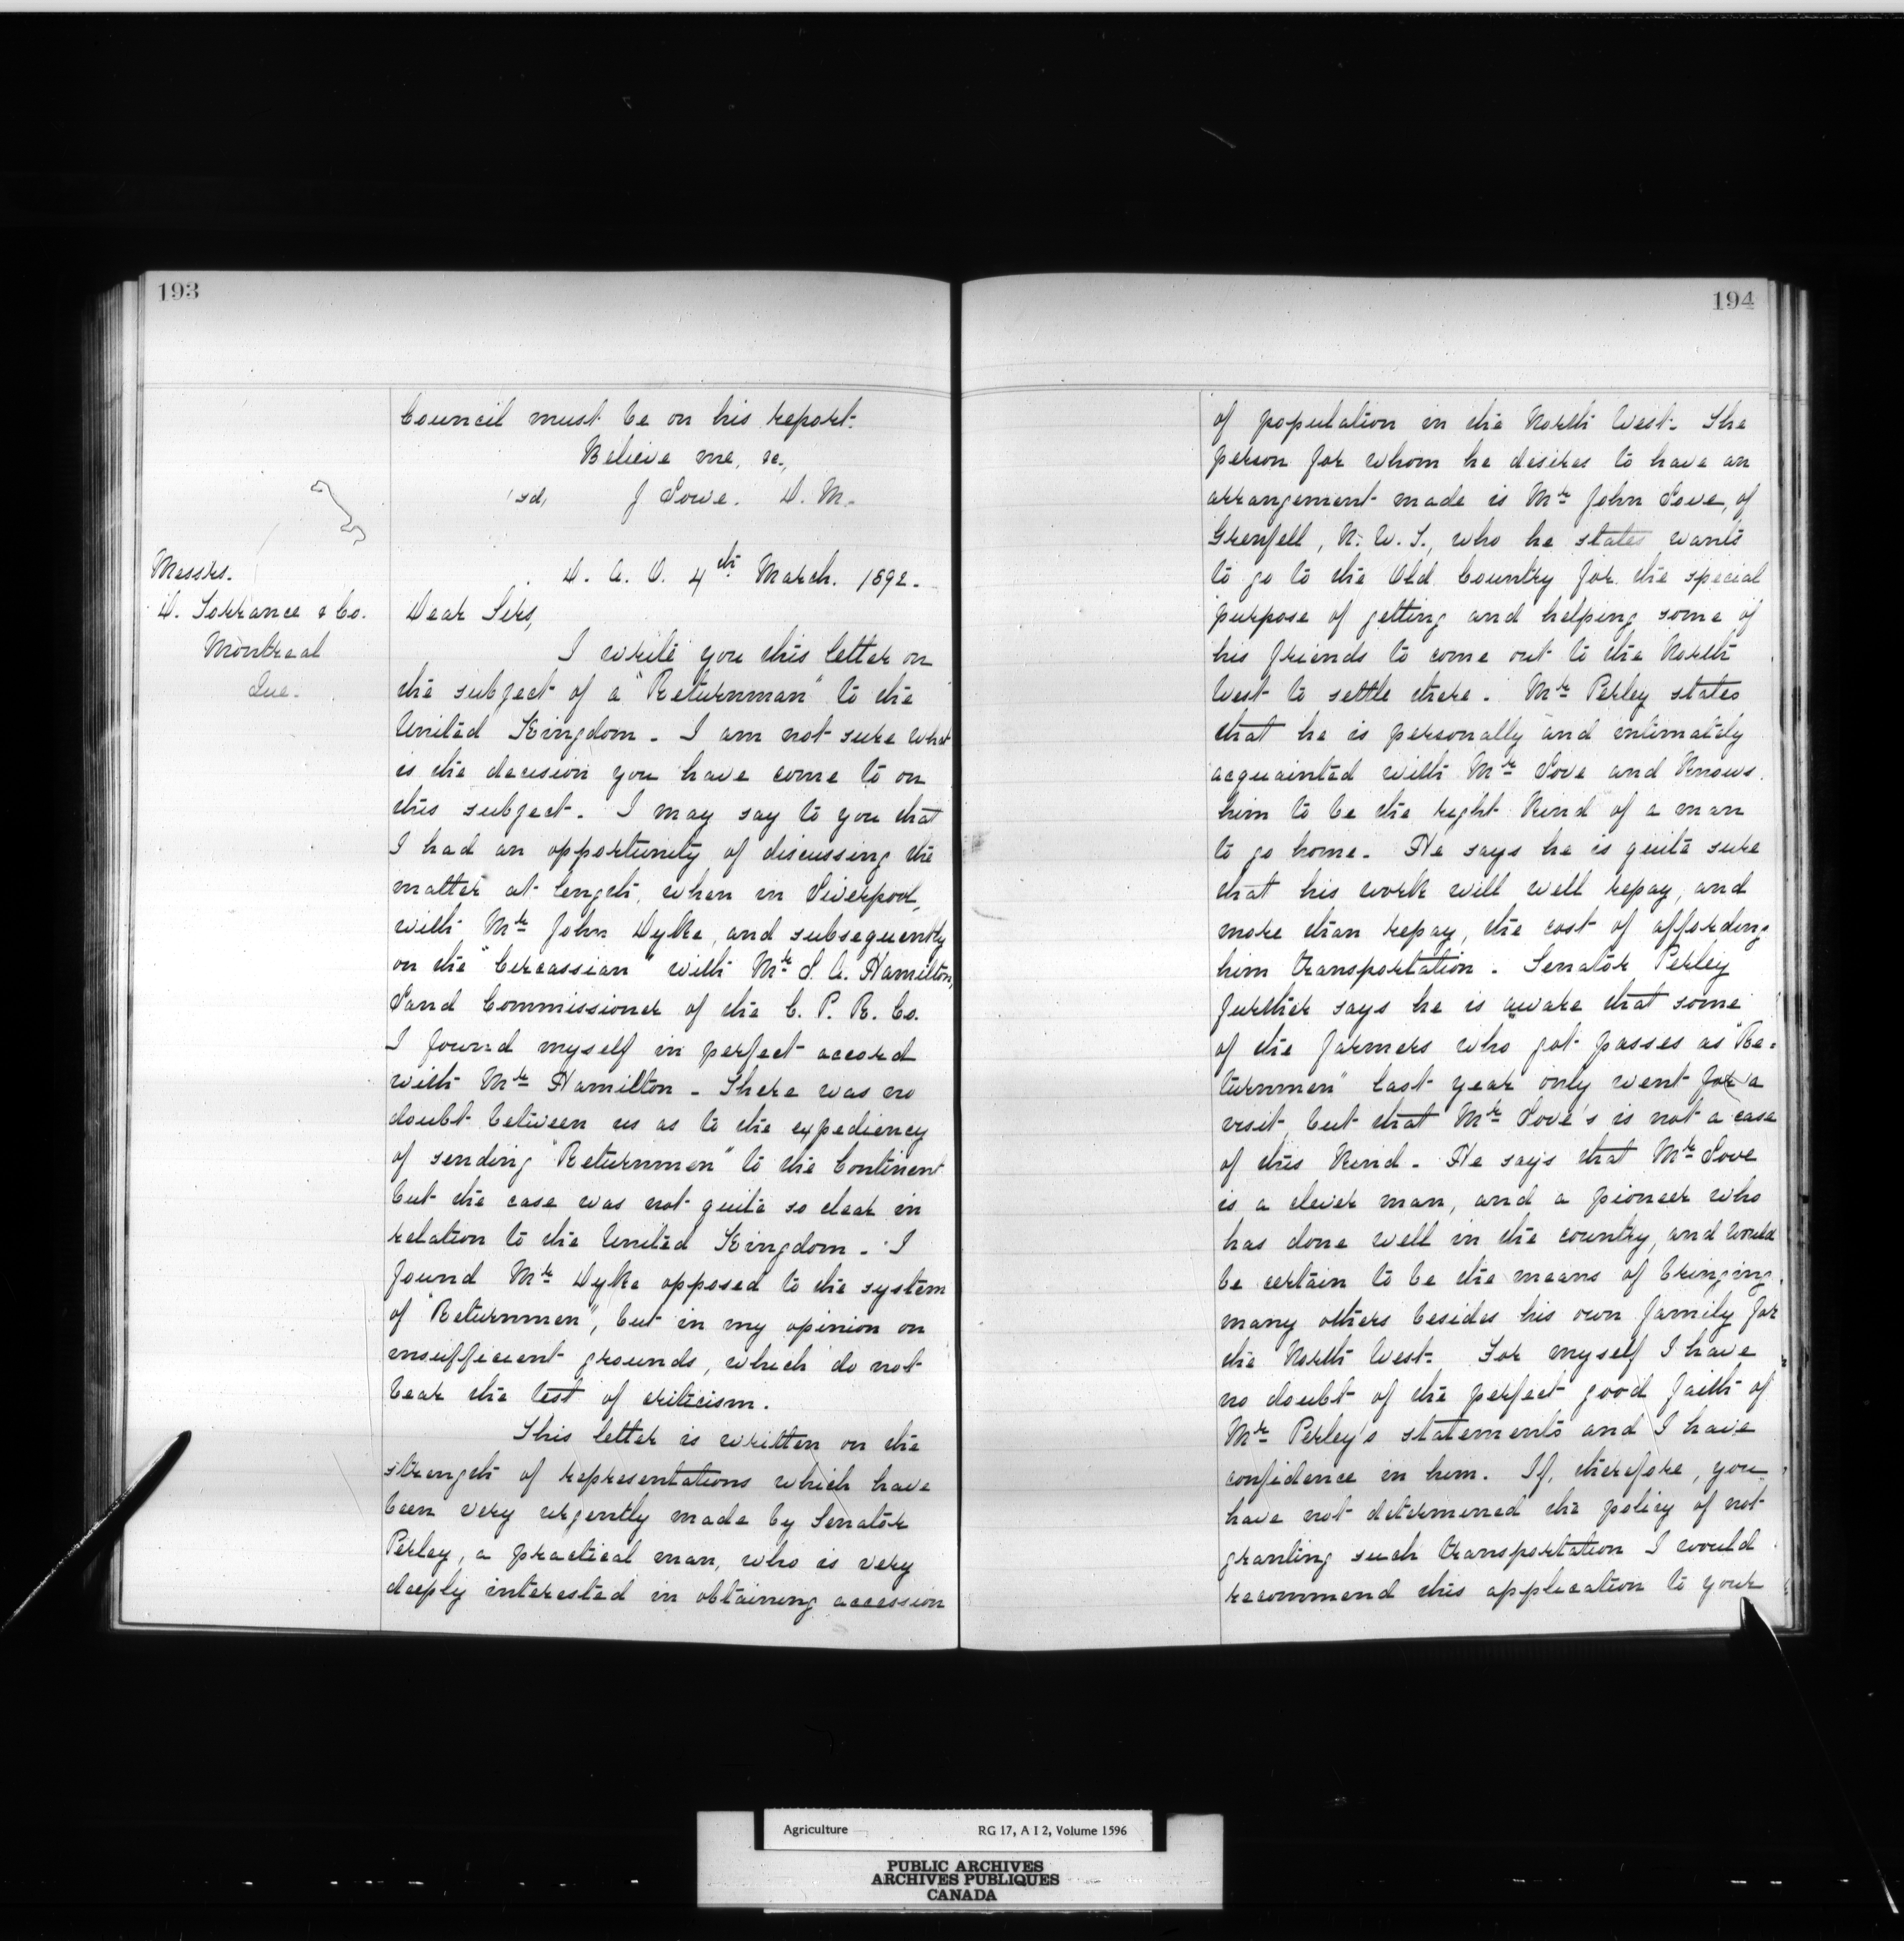 193
Council must be on his report.
Believe me, &c.,
(sd) J Lowe. D. M.
Messrs.
D. Torrance & Co.
Montreal
Que.
D. A. O. 4th March. 1892.
Dear Sirs,
I write you this letter on
the subject of a "Returnman" to the
United Kingdom. I am not sure what
is the decision you have come to on
this subject. I may say to you that
I had an opportunity of discussing the
matter at length, when in Liverpool,
with Mr John Dyke, and subsequently
on the "Circassian" with Mr L. A. Hamilton,
Land Commissioner of the C. P. R. Co.
I found myself in perfect accord
with Mr Hamilton. There was no
doubt between us as to the expediency
of sending "Returnmen" to the Continent
but the case was not quite so clear in
relation to the United Kingdom. I
found Mr Dyke opposed to the system
of "Returnmen", but in my opinion on
insufficient grounds, which do not
bear the test of criticism.
This letter is written on the
strength of representations which have
been very urgently made by Senator
Perley, a practical man, who is very
deeply interested in obtaining accession
194
of population in the North West. The
person for whom he desires to have an
arrangement made is Mr John Love, of
Grenfell, N. W. T., who he states wants
to go to the Old Country for the special
purpose of getting and helping some of
his friends to come out to the North
West to settle there. Mr Perley states
that he is personally and intimately
acquainted with Mr Love and knows
him to be the right kind of a man
to go home. He says he is quite sure
that his work will well repay, and
more than repay, the cost of affording
him transportation. Senator Perley
further says he is aware that some
of the farmers who got passes as "Re=
turnmen" last year only went for a
visit, but that Mr Love's is not a case
of this kind. He says that Mr Love
is a clever man, and a pioneer who
has done well in the country, and would
be certain to be the means of bringing
many others besides his own family for
the North West. For myself I have
no doubt of the perfect good faith of
Mr Perley's statements and I have
confidence in him. If, therefore, you
have not determined the policy of not
granting such transportation I would
recommend this application to your
Agriculture RG 17, A I 2, Volume 1596
PUBLIC ARCHIVES
ARCHIVES PUBLIQUES
CANADA